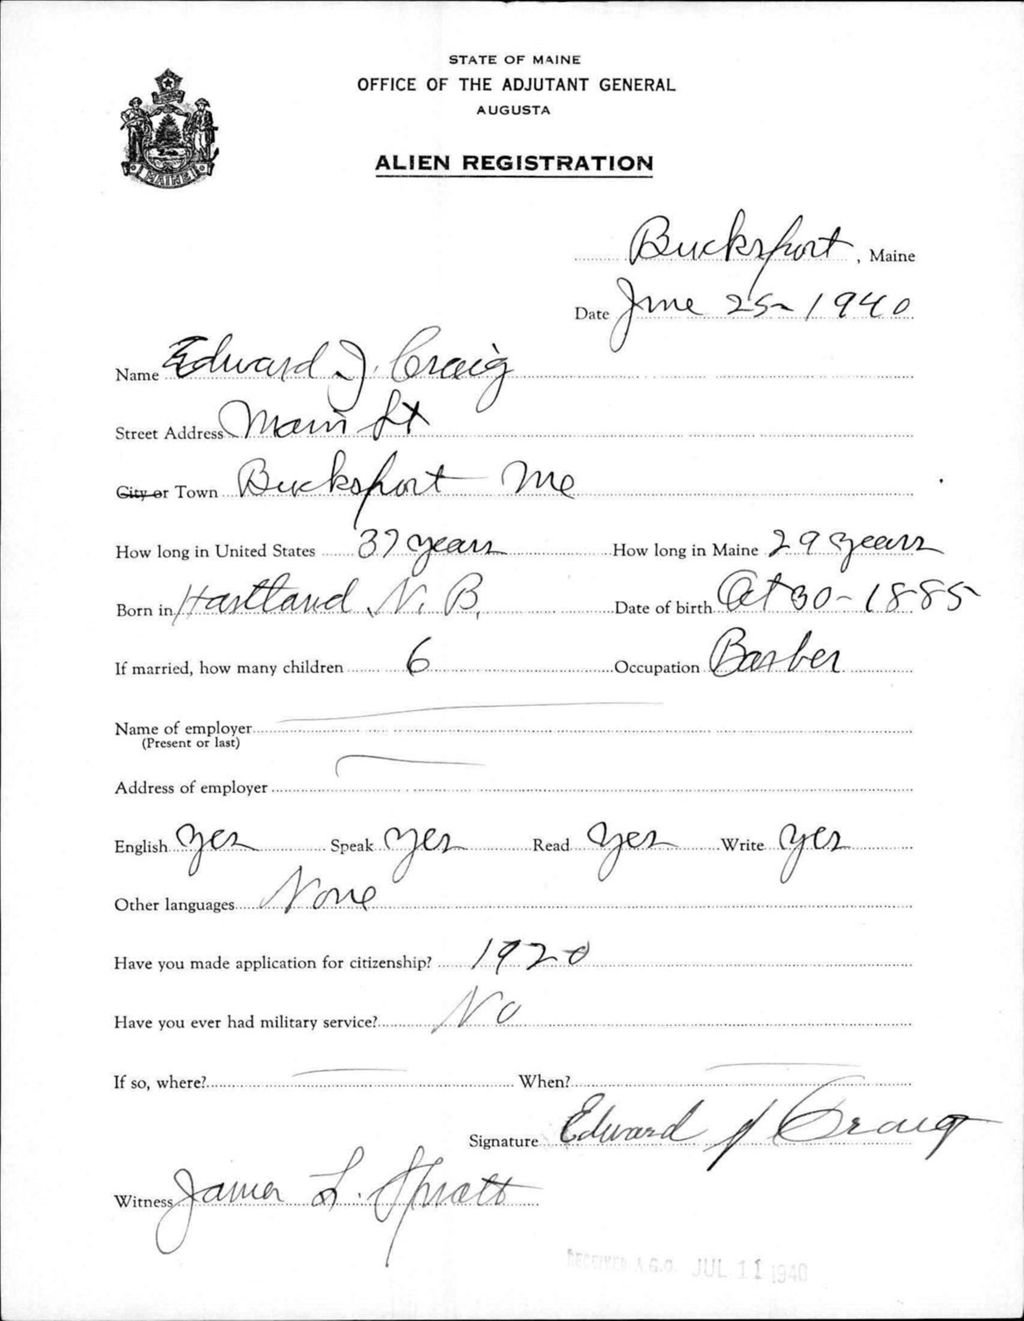 STATE OF MAINE
OFFICE OF THE ADJUTANT GENERAL
AUGUSTA
ALIEN REGISTRATION
MAINE
Bucksport, Maine
Date June 25 - 1940
Name Edward J. Craig
Street Address Main St
City or Town Bucksport Me
How long in United States 37 years How long in Maine 29 years
Born in Hartland N. B. Date of birth Oct 30 - 1885
If married, how many children 6 Occupation Barber
Name of employer
(Present or last)
Address of employer
English Yes Speak Yes Read Yes Write Yes
Other languages None
Have you made application for citizenship? 1920
Have you ever had military service? No
If so, where? When?
Signature Edward J Craig
Witness James L. Spratt
RECEIVED A.G.O. JUL 11 1940